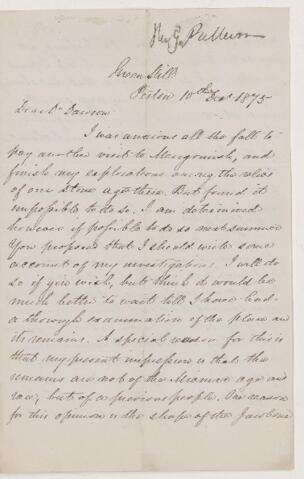 Green Hill
Pictou 10th Dec 1875
Dear Dr Dawson
I was anxious all the fall to
pay another visit to Merigomish, and
finish my explorations among the relics
of our stone age there. But found it
impossible to do so. I am determined
however if possible to do so next summer
You propose that I should write some
account of my investigations. I will do
so if you wish, but think it would be
much better to wait till I have had
a thorough examination of the place and
its remains. A special reason for this is
that my present impression is that the
remains are not of the Micmac age or
race, but of a previous people. One reason
for this opinion is the shape of the jawbone